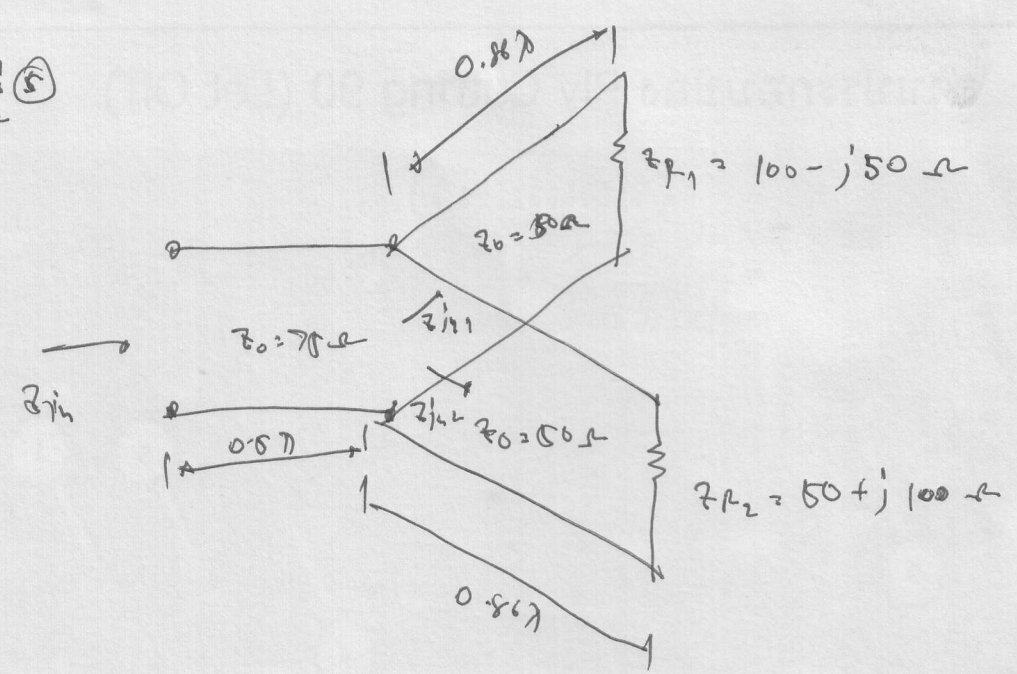 5
0.86λ
Z_R1 = 100 - j50 Ω
Z_0 = 50Ω
Z_in1
Z_0 = 75 Ω
Z_in
Z_in2
Z_0 = 50 Ω
0.5λ
Z_R2 = 50 + j 100 Ω
0.86λ